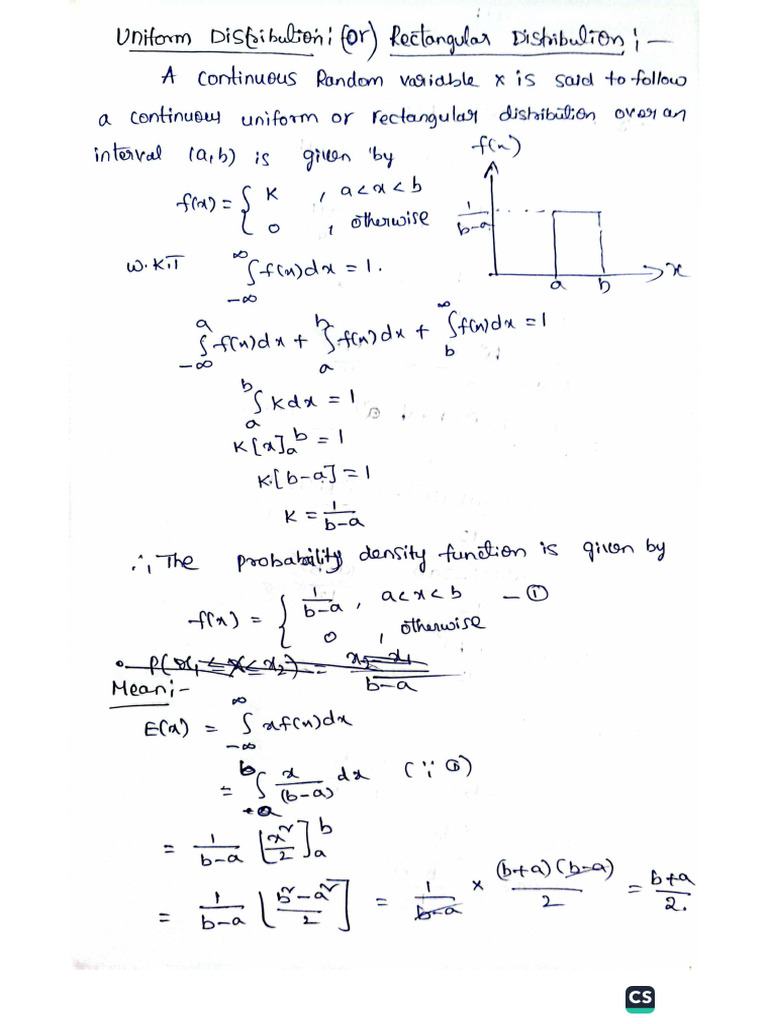 Uniform Distribution: (or) Rectangular Distribution :-
A continuous Random variable x is said to follow
a continuous uniform or rectangular distribution over an
interval (a,b) is given by
f(x) = { K , a<x<b
0 , otherwise
f(x)
1/(b-a)
a b x
W.K.T ∫_{-∞}^{∞} f(x)dx = 1.
∫_{-∞}^{a} f(x)dx + ∫_{a}^{b} f(x)dx + ∫_{b}^{∞} f(x)dx = 1
∫_{a}^{b} K dx = 1
K[x]_a^b = 1
K.[b-a] = 1
K = 1/(b-a)
∴, The probability density function is given by
f(x) = { 1/(b-a) , a<x<b - ①
0 , otherwise
P(x₁ ≤ X ≤ x₂) = (x₂ - x₁)/(b-a)
Mean:-
E(x) = ∫_{-∞}^{∞} x f(x)dx
= ∫_{a}^{b} x/(b-a) dx (∵ ①)
= 1/(b-a) [x²/2]_a^b
= 1/(b-a) [(b²-a²)/2] = 1/(b-a) × (b+a)(b-a)/2 = (b+a)/2.
CS